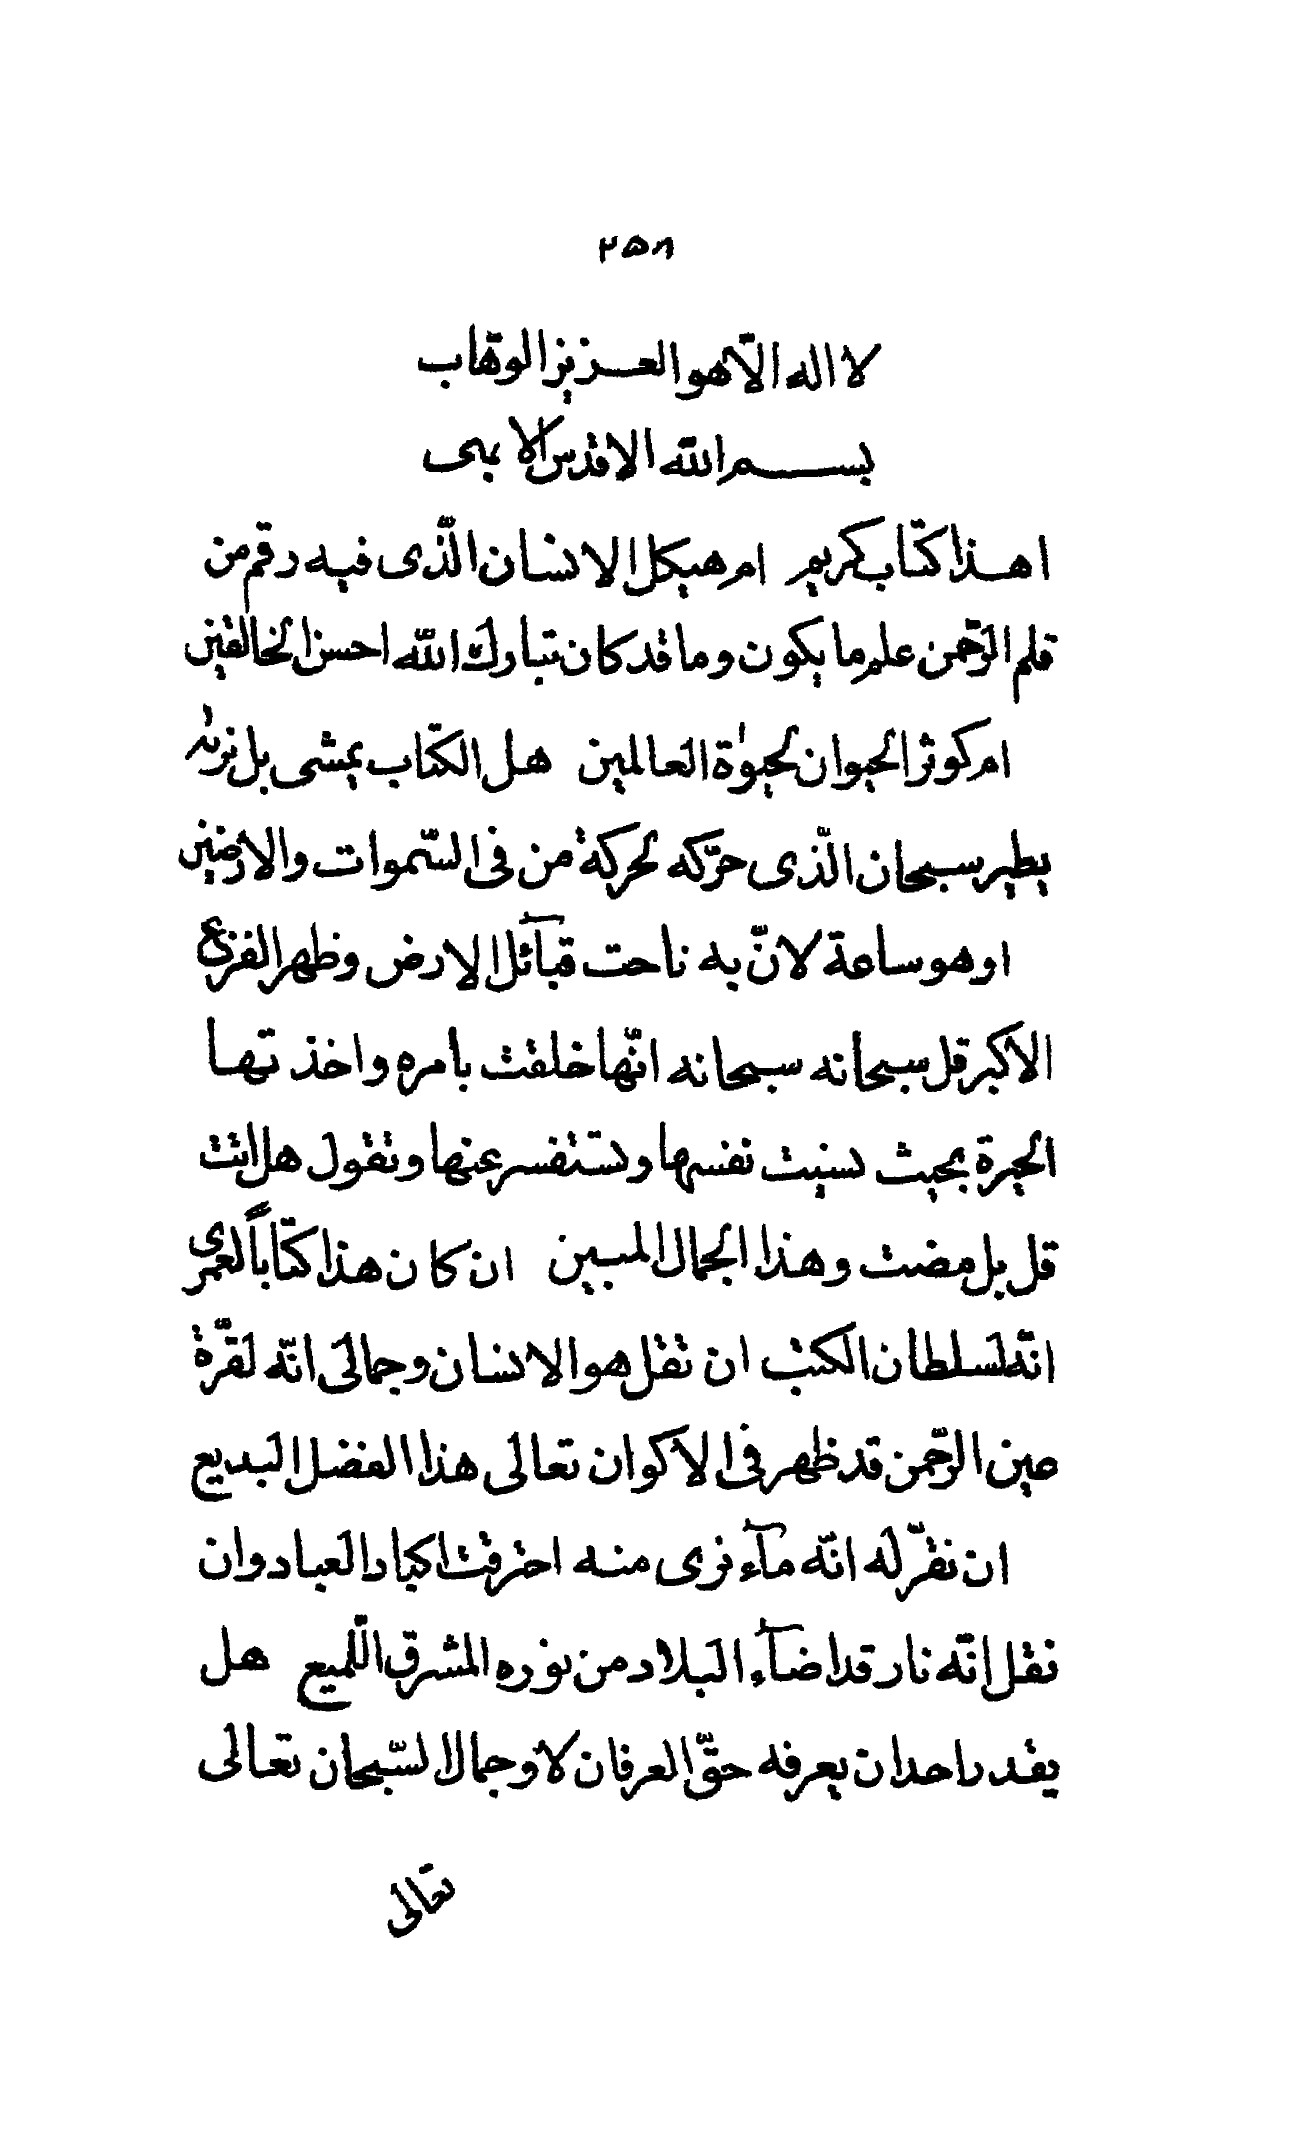 ٢٥٨
لا اله الّا هو العزيز الوهّاب
بسم اللّه الاقدس الابهى
اهذا كتاب كريم ام هيكل الانسان الّذى فيه رقم من
قلم الرّحمن علم ما يكون وما قد كان تبارك اللّه احسن الخالقين
ام كوثر الحيوان لحيوٰة العالمين هل الكتاب يمشى بل نرىٰه
يطير سبحان الّذى حرّكه لحركة من فى السّموات والارضين
او هو ساعة لانّ به ناحت قبآئل الارض وظهر الفزع
الاكبر قل سبحانه سبحانه انّها خلقت بأمره واخذتها
الحيرة بحيث نسيت نفسها وتستفسر عنها وتقول هل اتت
قل بل مضت وهذا الجمال المبين ان كان هذا كتاباً لعمرى
انّه لسلطان الكتب ان نقل هو الانسان وجمالى انّه لقرّة
عين الرّحمن قد ظهر فى الاكوان تعالى هذا الفضل البديع
ان نقرّ له انّه مآء نرى منه احترقت اكباد العباد وان
نقل انّه نار قد اضآء البلاد من نوره المشرق اللّميع هل
يقدر احد ان يعرفه حقّ العرفان لا وجمال السّبحان تعالى
تعالى